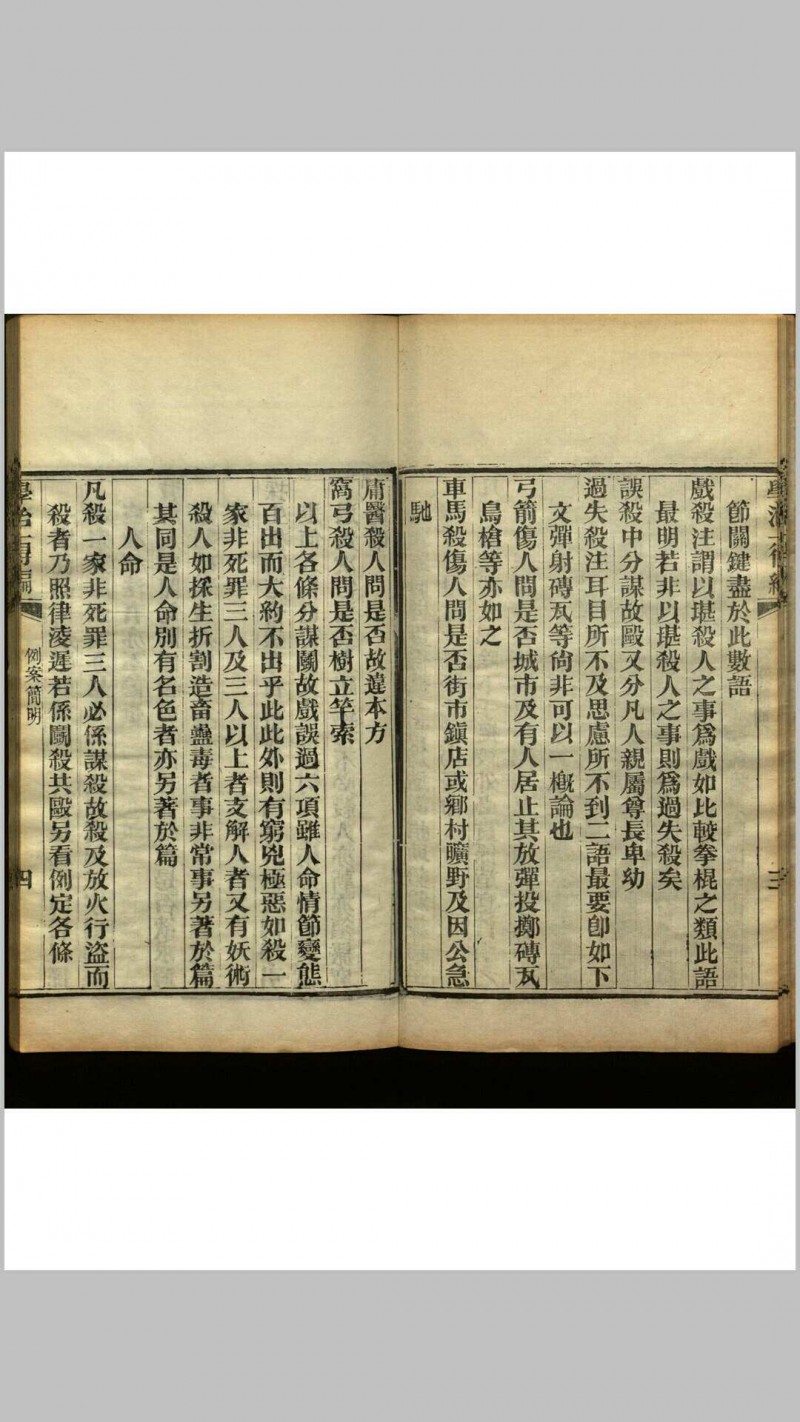 節關鍵盡於此數語
戲殺注謂以堪殺人之事爲戲如比較拳棍之類此語
最明若非以堪殺人之事則爲過失殺矣
誤殺中分謀故毆又分凡人親屬尊長卑幼
過失殺注耳目所不及思慮所不到二語最要卽如下
文彈射磚瓦等尙非可以一槪論也
弓箭傷人問是否城市及有人居止其放彈投擲磚瓦
鳥槍等亦如之
車馬殺傷人問是否街市鎭店或鄉村曠野及因公急
馳
三
庸醫殺人問是否故違本方
窩弓殺人問是否樹立竿索
以上各條分謀鬭故戲誤過六項雖人命情節變態
百出而大約不出乎此此外則有窮兇極惡如殺一
家非死罪三人及三人以上者支解人者又有妖術
殺人如採生折割造畜蠱毒者事非常事另著於篇
其同是人命別有名色者亦另著於篇
人命
凡殺一家非死罪三人必係謀殺故殺及放火行盜而
殺者乃照律淩遲若係鬭殺共毆另看例定各條
例案簡明
四